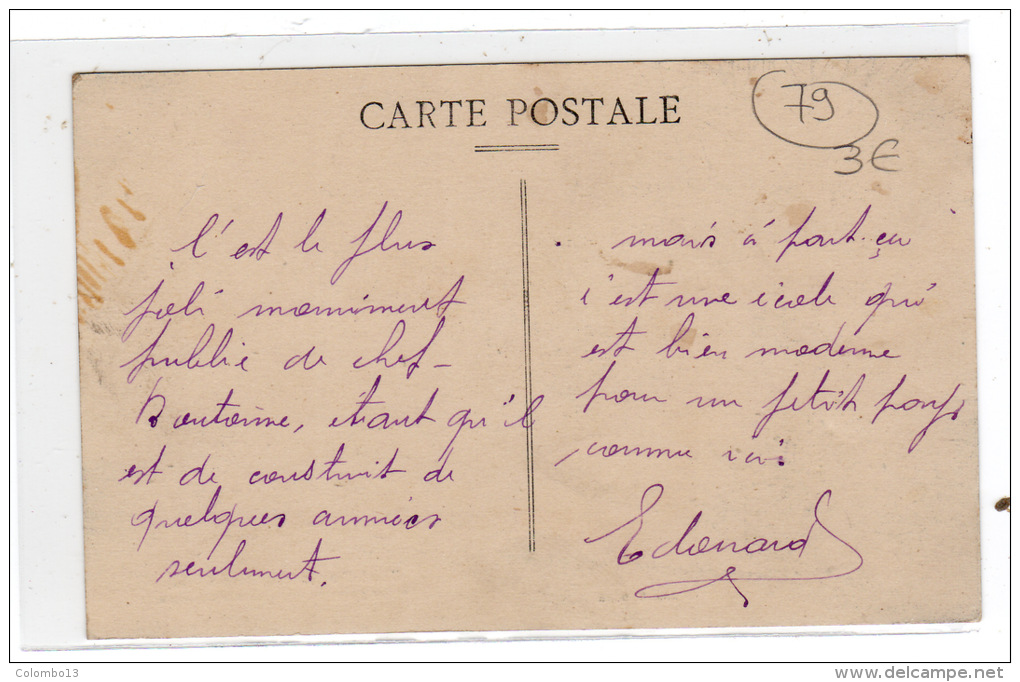 CARTE POSTALE
79
3€
c'est le plus
joli monument
public de chef-
Boutonne, étant qu'il
est de construit de
quelques années
seulement.
mais à part ça
c'est une école qui
est bien moderne
pour un petit pays
comme ici.
Edouard
Colombo13
www.delcampe.net